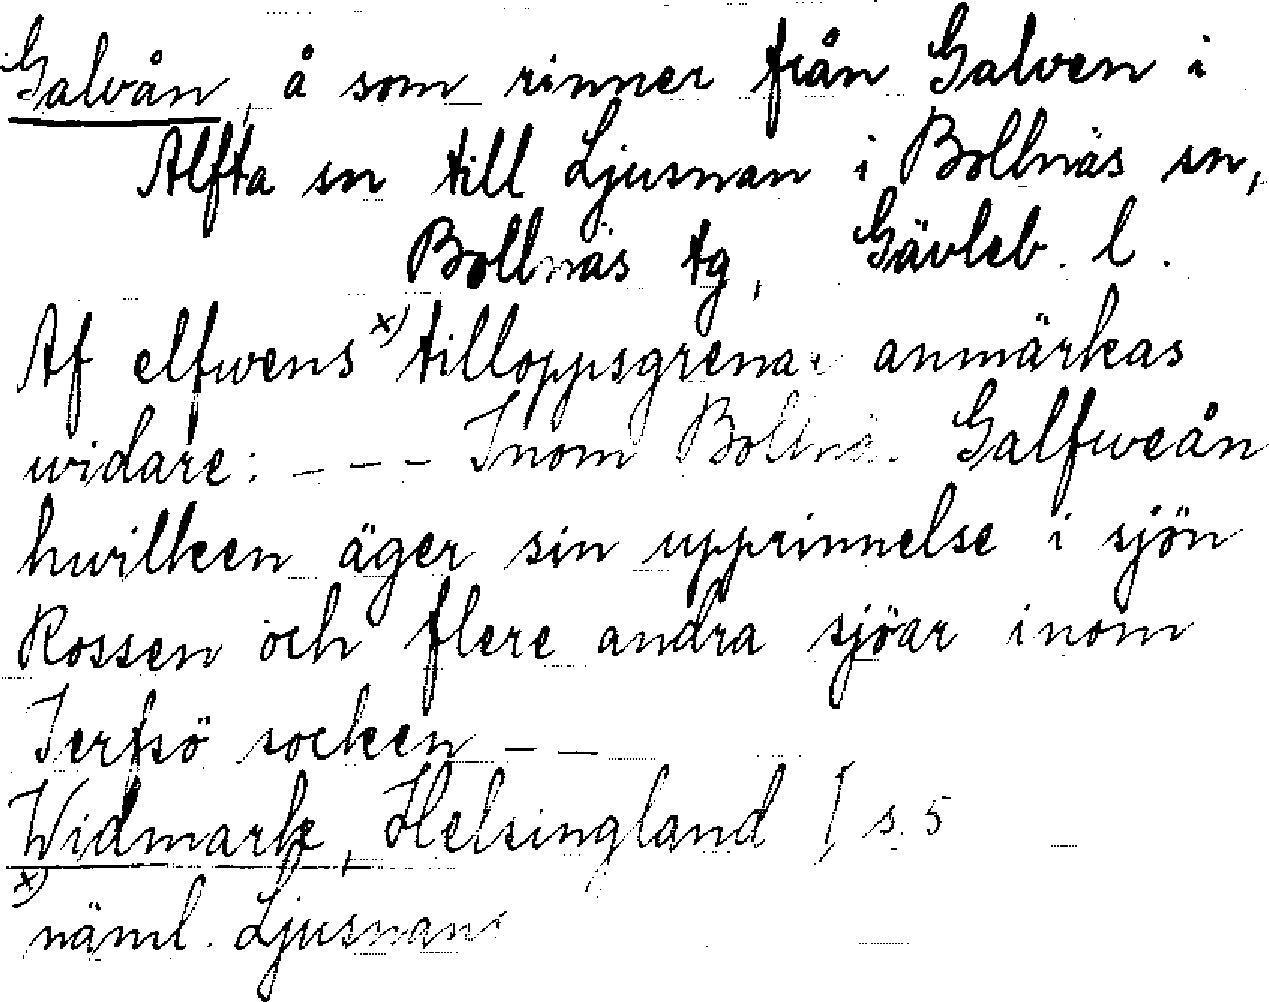 Galvån, å som rinner från Galven i
Alfta sn till Ljusnan i Bollnäs sn,
Bollnäs tg, Gävleb. l.
Af elfwens x) tilloppsgrenar anmärkas
widare: - - - Inom Bollnäs Galfweån
hwilken äger sin upprinnelse i sjön
Rossen och flere andra sjöar inom
Jerfsö socken - -
Widmark, Helsingland I s. 5
x)
näml. Ljusnans